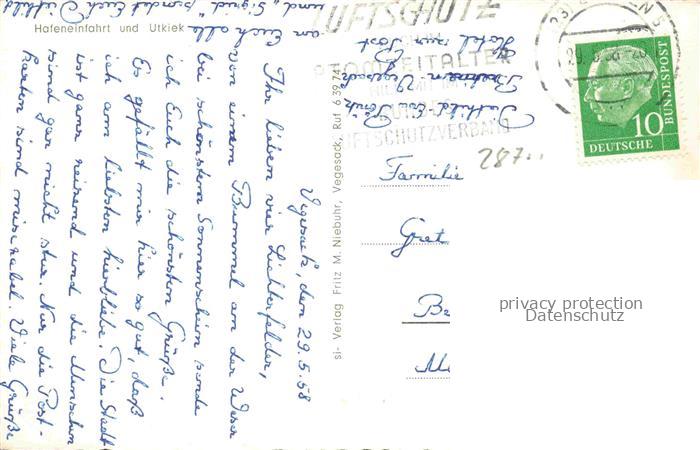 Hafeneinfahrt und Utkiek
Vegesack, den 29.5.58
Ihr lieben vier Lichterfelder,
von einem Bummel an der Weser
bei schönstem Sonnenschein sende
ich Euch die schönsten Grüße.
Es gefällt mir hier so gut, daß
ich am liebsten hierbliebe. Die Stadt
ist ganz reizend und die Menschen
sind gar nicht stur. Nur die Post-
karten sind miserabel. Viele Grüße
an Euch alle
und „Sigrid" sendet Euch Diethild
si- Verlag Fritz M. Niebuhr, Vegesack, Ruf 6 39 74
Diethild
Bremen-Vegesack
Hotel zur Post
LUFTSCHUTZ
ATOMZEITALTER
LUFTSCHUTZVERBAND
DEUTSCHE
BUNDESPOST
10
287
Familie
Gret
Be
M
privacy protection
Datenschutz